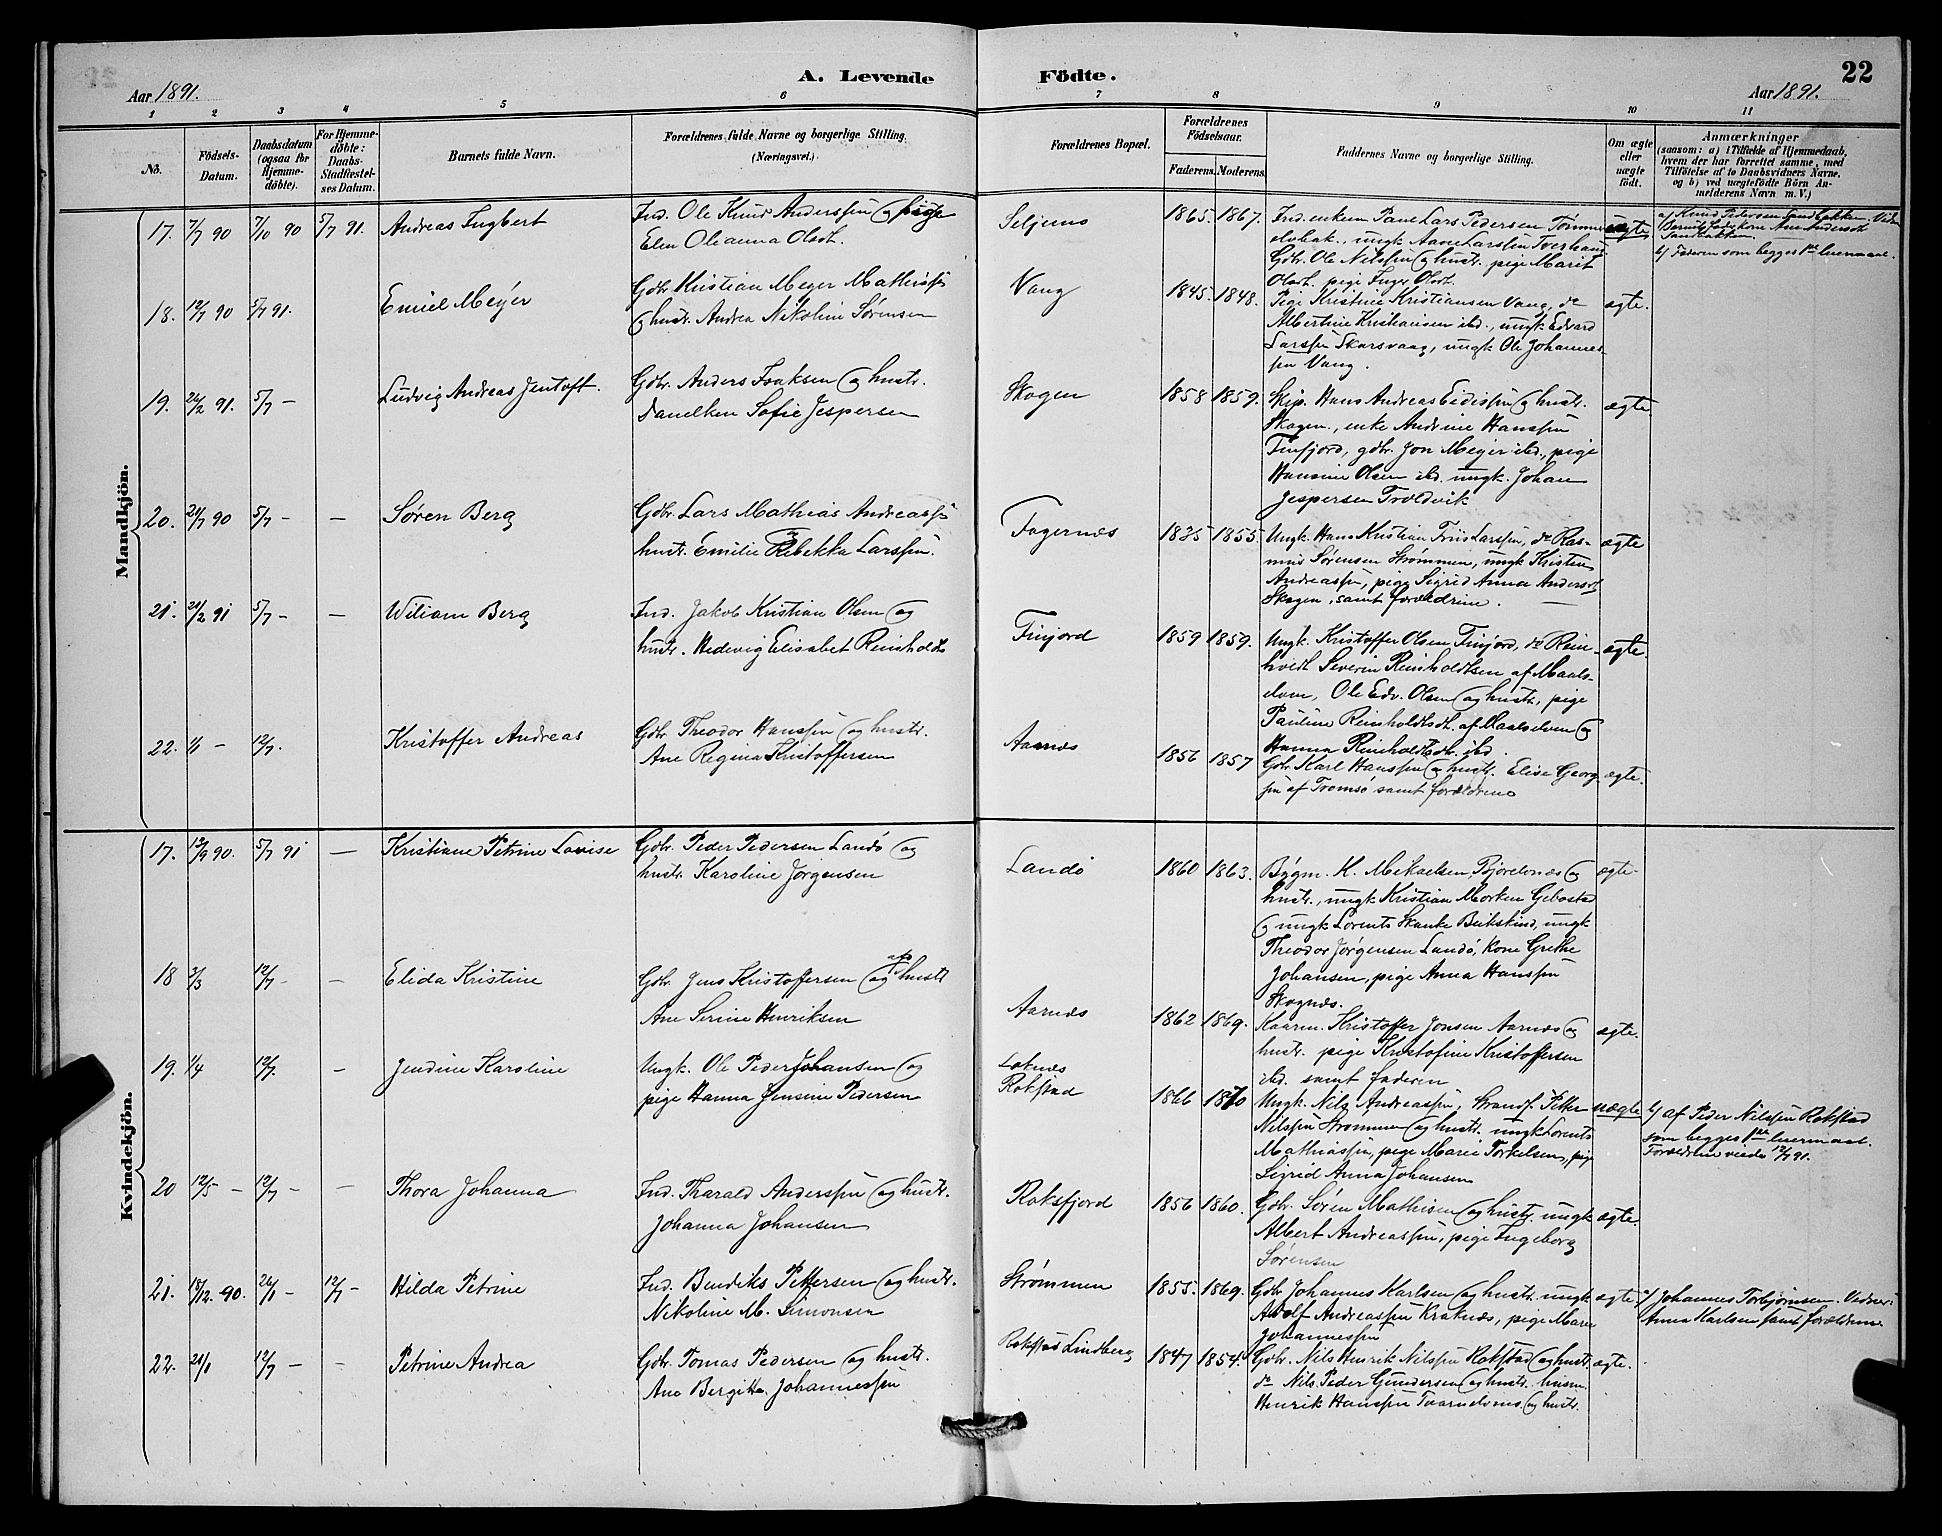 A. Levende Födte.
22
Aar 1891.
Aar 1891.
1 2 3 4 5 6 7 8 9 10 11
No.
Födsels-Datum.
Daabsdatum (ogsaa for Hjemme-döbte).
For Hjemme-döbte: Daabs-Stadfæstel-ses Datum.
Barnets fulde Navn.
Forældrenes fulde Navne og borgerlige Stilling.
(Næringsvei.)
Forældrenes Bopæl.
Forældrenes Födselsaar.
Faderens. Moderens.
Faddernes Navne og borgerlige Stilling.
Om ægte eller uægte födt.
Anmærkninger
(saasom: a) i Tilfælde af Hjemmedaab,
hvem der har forrettet samme, med
Tilföielse af to Daabsvidners Navne,
og b) ved uægtefödte Börn An-
melderens Navn m. V.)
Mandkjön.
17. 7/7 90 7/10 90 5/7 91. Andreas Ingbert
Ind. Ole Knud Anderssen og pige
Elen Olianna Olsdt.
Seljenes
1865. 1867.
Ind. enkem Pane Lars Pedersen Tømmer
elvbak., ungk Aane Larssen Tverhaug
Gdbr. Ole Nilssen og hustr. pige Marit
Olsdt. pige Inger Olsdt.
uægte
a/ Knud Pedersen Sandbakken. Vidn
Sandbakken.
b/ Faderen som begges 1ste leiermaal.
18. 12/7 90 5/7 91. Emiel Meyer
Gdbr. Kristian Meyer Mathissen
og hustr. Andrea Nikoline Sørensen
Vang
1845. 1848.
Pige Kristine Kristiansen Vang, do
Albertine Kristiansen ibd., ungk Edvard
Larssen Skarsvaag, ungk Ole Johannes-
sen Vang.
ægte.
19. 26/2 91. 5/7 - Ludvig Andreas Jentoft.
Gdbr. Anders Isaksen og hustr.
Danelken Sofie Jespersen
Skogen
1858 1859.
Skip. Hans Andreas Eidissen og hustr.
Skogen., enke Andrine Hanssen
Finfjord, gdbr. Jon Meyer ibd., pige
Hansine Olsen ibd. ungk. Johan
Jespersen Troldvik
ægte
20. 21/7 90 5/7 - - Søren Berg
Gdbr. Lars Mathias Andreassen
hustr. Emilie Rebekka Larssen.
Fagernes
1835 1855.
Ungk. Hans Kristian Friis Larssen, do Ras-
mus Sørensen Strømmen, ungk Kristian
Andreassen, pige Sigrid Anna Andersdt
Skogen, samt forældrene.
ægte
21. 21/2 91 5/7 - - Wiliam Berg
Ind. Jakob Kristian Olsen og
hustr. Hedevig Elisabet Reinholdts
Finjord
1859 1859.
Ungk. Kristoffer Olsen Finjord, do Rein-
holdt Severin Reinholdtsen af Maals-
elven, Ole Edv. Olsen og hustr., pige
Pauline Reinholdtsdt. af Maalselven og
Hanna Reinholdtsdt. ibd.
ægte.
22. 1/1 - 12/7. Kristoffer Andreas
Gdbr. Theodor Hanssen og hustr.
Ane Regina Kristoffersen
Aarnes
1856 1857
Gdbr. Karl Hanssen og hustr. Elise Georg-
sen af Tromsø samt forældrene
ægte.
Kvindekjön.
17. 13/9 90. 5/7 91 - Kristiane Petrine Lovise
Gdbr. Peder Pedersen Landø og
hustr. Karoline Jørgensen
Landö
1860 1863.
Bygm. K. Mikaelsen, Bjorelvnes og
hustr., ungk Kristian Morken Gebostad
og ungk Lorents Skanke Bukskind, ungk
Theodor Jørgensen Landö, kone Grethe
Johansen, pige Anna Hanssen
Skognes.
ægte.
18 3/3 12/7 - - Elida Kristine
Gdbr. Jens Kristoffersen og hustr
Ane Serine Henriksen
Aarnes
1862 1869.
Kaarem. Kristoffer Jonsen Aarnes og
hustr. pige Kristofine Kristoffersen
ibd. samt faderen
ægte.
19. 1/4 12/7. - Jendine Karoline
Ungk. Ole Peder Johansen og
pige Hanna Jensine Pedersen
Laknes
Rokstad
1866 1870
Ungk. Nils Andreassen, Strands. Petter
Nilssen Strømmen og hustr. ungk Lorents
Mathiassen, pige Marie Torkelsen, pige
Sigrid Anna Johansen
uægte
b/ af Peder Nilssen Rokstad
som begges 1ste leiermaal.
Forældrene viede 12/7 91.
20 12/5 - 12/7 - - Thora Johanna
Ind. Tharald Anderssen og hustr.
Johanna Johansen
Roksfjord
1856 1860.
Gdbr. Søren Mathisen og hustr. ungk
Albert Andreassen, pige Ingeborg
Sørensen
ægte.
21. 18/12. 90. 26/1 - 12/7 - Hilda Petrine
Ind. Bendiks Pettersen og hustr.
Nikoline M. Simonsen
Strømmen
1855. 1869.
Gdbr Johannes Karlsen og hustr. ungk
Adolf Andreassen Kraknes, pige Maren
Johannessen
ægte.
a/ Johannes Torbjørnsen. Vidner:
Anna Karlsen samt forældrene
22. 21/1 12/7 - - Petrine Andrea
Gdbr. Tomas Pedersen og hustr.
Ane Bergitta Johannessen
Rokstad Lindberg
1847 1854.
Gdbr. Nils Henrik Nilssen Rokstad og hustr.
do Nils Peder Gundersen og hustr. husm.
Henrik Hanssen Taarnelvnes og hustr.
ægte.